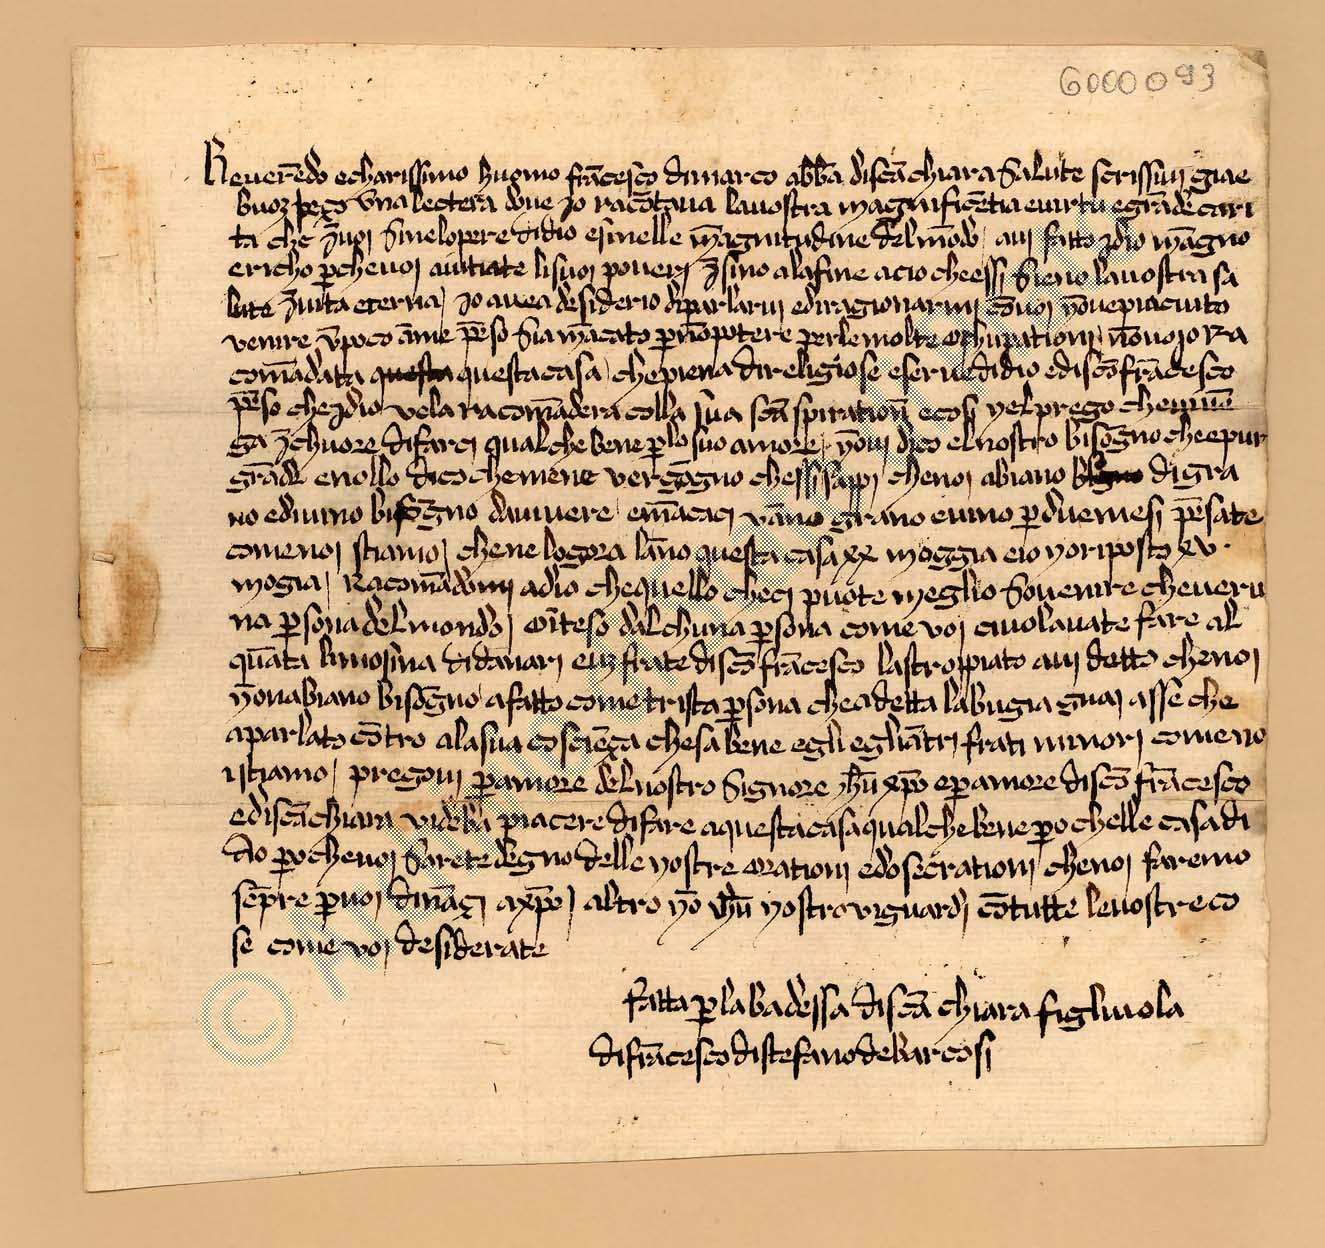 6000093
Reverēdo echarissimo huomo frācesco dimarco abb̄a discā chiara salute scrissivi giae
buoz peço una lectera dove io racōtava lavostra magnificētia evirtu egrāde cari
ta che īvoi sinelopere didio esinelle magnitudine delmōdo avi fatto idio māgno
ericho perchevoi autiate lisuoi poveri īsino alafine acio cheessi sieno lavostra sa
lute īvita eterna io avea desiderio diparlarvi ediragionarvi cōvoi nōvepiaciuto
venire ūpoco āme pēso siamācato pernōpotere perlemolte ochupationi nōvoio ra
comādata questa questacasa chepiena direligiose eservedidio ediscō frācesco
pēso cheidio vela racomāderà colla sua scā spirationē ecosi nelprego che
ga īchuore difarci qualchebene perlo suo amore nōvi dico elnostro bisōgno cheepur
grāde enollo dico chemene vergōgno chessisappi chenoi abiano digra
no ediuino bisōgno davivere emācaci vāno grano euino perduemesi pēsate
comenoi stiamo chene logora lāno questa casa xx moggia eio noriposto xv.
mogia racomādomi adio chequello checi puote meglio sovenire cheveru
na persona delmondo oīteso dalchuna persona come voi civolavate fare al
quāta limosina didanari euz frate discō frācesco lastroppiato avi detto chenoi
nōnabiano bisōgno afatto come trista persona chea detta labugia guai asse che
aparlato cōtro alasua cosciēça chesa bene egli egliātri frati minori comeno
istiamo pregovi peramore delnostro signore yhū xp̄o eperamore discō frācesco
ediscā chiara videbia piacere difare aquestacasa qualchebene pero chelle casa di
dio pero chevoi sarete degno delle nostre orationi edosecrationi chenoi faremo
sēpre pervoi dināçi axp̄o altro nō yhū nostro viguardi cōtutte levostre co
se come voi desiderate
fatta perlabadessa discā chiara figliuola
difrācesco distefano debarcosi